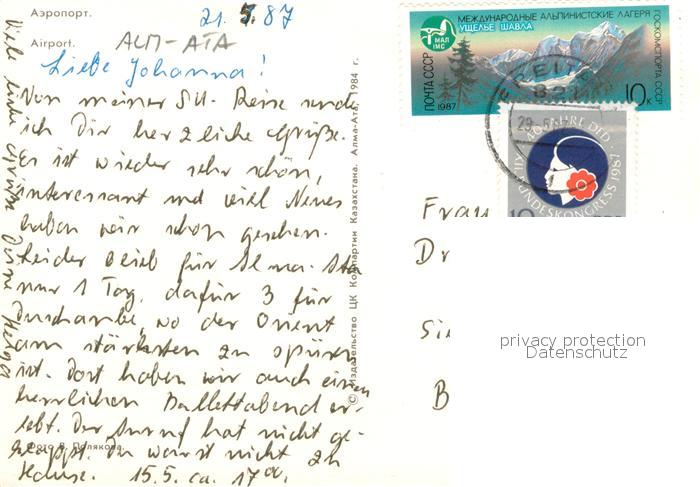 Аэропорт.
Airport.
21.5.87
ALM-ATA
Liebe Johanna!
Von meiner SU-Reise sende
ich Dir herzliche Grüße.
Es ist wieder sehr schön,
interessant und viel Neues
haben wir schon gesehen.
Leider blieb für Alma-Ata
nur 1 Tag, dafür 3 für
Duschanbe, wo der Orient
am stärksten zu spüren
ist. Dort haben wir auch einen
herrlichen Ballettabend er-
lebt. Der Anruf hat nicht ge-
klappt. Du warst nicht zu
Hause. 15.5. ca. 17⁰⁰.
Viele liebe Grüße Deine Helga
Фото В. Полякова.
© Издательство ЦК Компартии Казахстана. Алма-Ата, 1984 г.
МЕЖДУНАРОДНЫЕ АЛЬПИНИСТСКИЕ ЛАГЕРЯ ГОСКОМСПОРТА СССР
УЩЕЛЬЕ ШАВЛА
МАЛ
IMC
ПОЧТА СССР
1987
10к
FREITAL
821
40 JAHRE DFD
XII. BUNDESKONGRESS 1987
10
DDR
Frau
Dr
Sie
B
privacy protection
Datenschutz